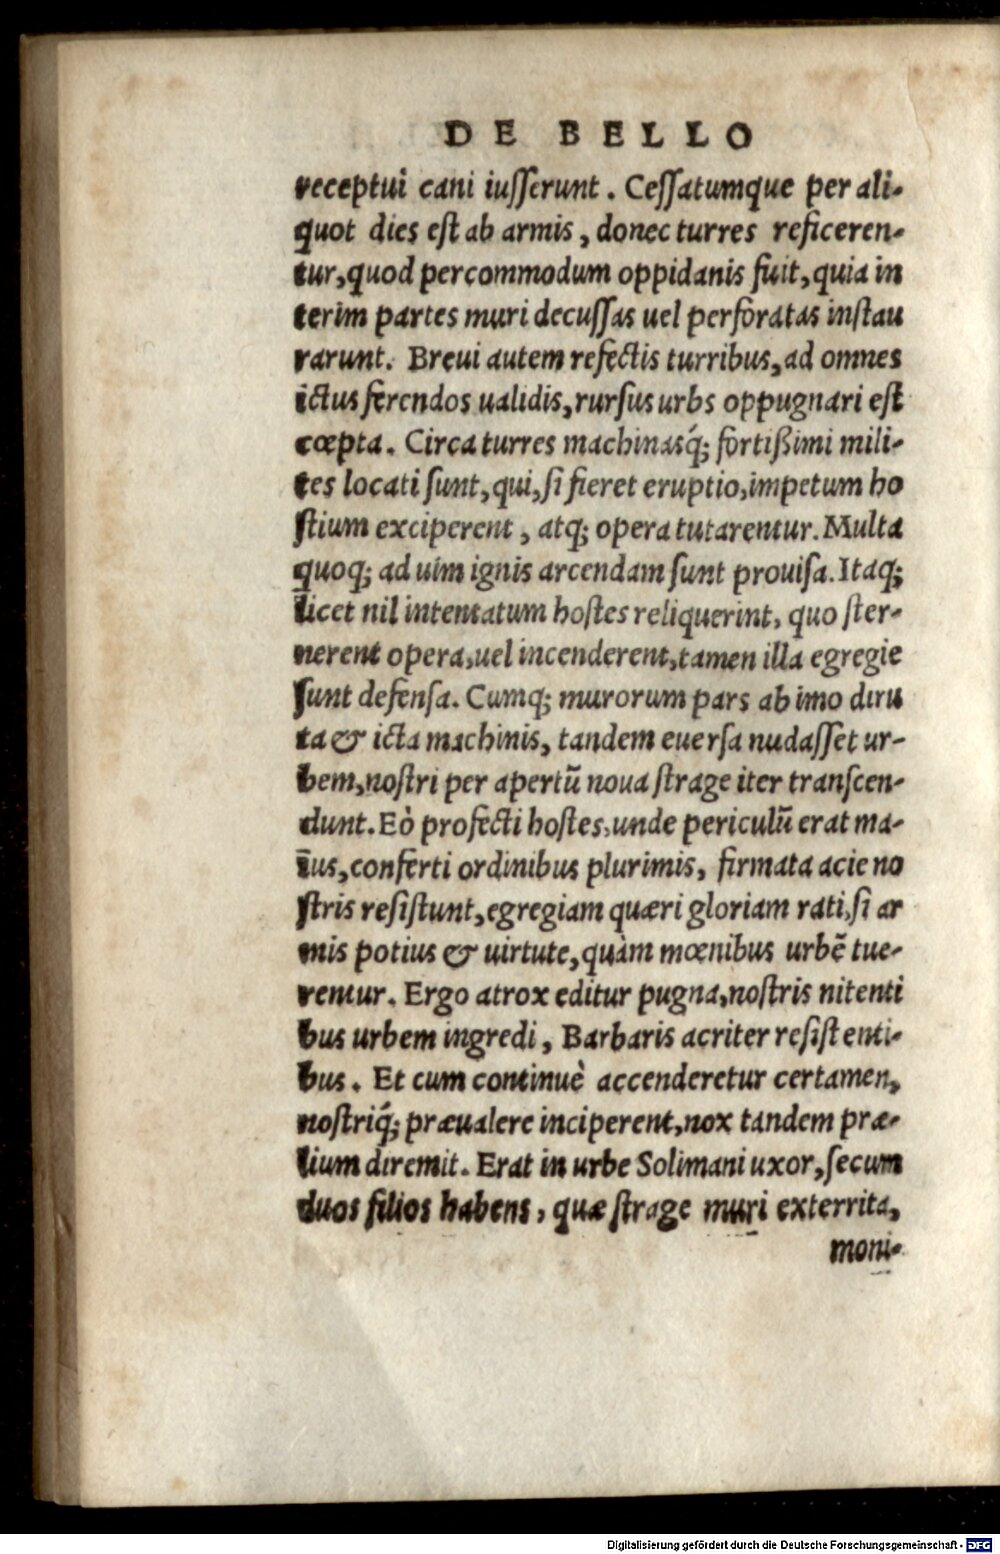 DE BELLO
receptui cani iusserunt. Cessatumque per ali-
quot dies est ab armis, donec turres reficeren-
tur, quod percommodum oppidanis fuit, quia in
terim partes muri decussas uel perforatas instau
rarunt. Breui autem refectis turribus, ad omnes
ictus ferendos ualidis, rursus urbs oppugnari est
cœpta. Circa turres machinasq́; fortißimi mili-
tes locati sunt, qui, si fieret eruptio, impetum ho
stium exciperent, atq; opera tutarentur. Multa
quoq; ad uim ignis arcendam sunt prouisa. Itaq;
licet nil intentatum hostes reliquerint, quo ster-
nerent opera, uel incenderent, tamen illa egregie
sunt defensa. Cumq; murorum pars ab imo diru
ta & icta machinis, tandem euersa nudasset ur-
bem, nostri per apertũ noua strage iter transcen-
dunt. Eò profecti hostes, unde periculũ erat ma-
ius, conferti ordinibus plurimis, firmata acie no
stris resistunt, egregiam quæri gloriam rati, si ar
mis potius & uirtute, quàm mœnibus urbẽ tue-
rentur. Ergo atrox editur pugna, nostris nitenti
bus urbem ingredi, Barbaris acriter resistenti-
bus. Et cum continuè accenderetur certamen,
nostriq́; præualere inciperent, nox tandem præ-
lium diremit. Erat in urbe Solimani uxor, secum
duos filios habens, quæ strage muri exterrita,
moni-
Digitalisierung gefördert durch die Deutsche Forschungsgemeinschaft - DFG